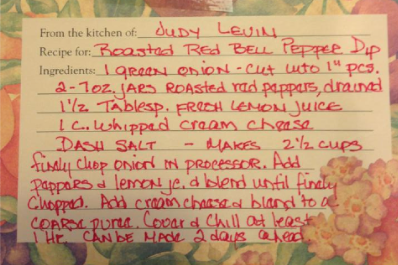 From the kitchen of: Judy Levin
Recipe for: Roasted Red Bell Pepper Dip
Ingredients: 1 green onion - cut into 1" pcs.
2-7oz. jars roasted red peppers, drained
1½ Tablesp. fresh lemon juice
1 c. whipped cream cheese
Dash salt - Makes 2½ cups
finely chop onion in processor. Add
peppers & lemon jc. & blend until finely
chopped. Add cream cheese & blend to a
coarse puree. Cover & chill at least
1 hr. Can be made 2 days ahead